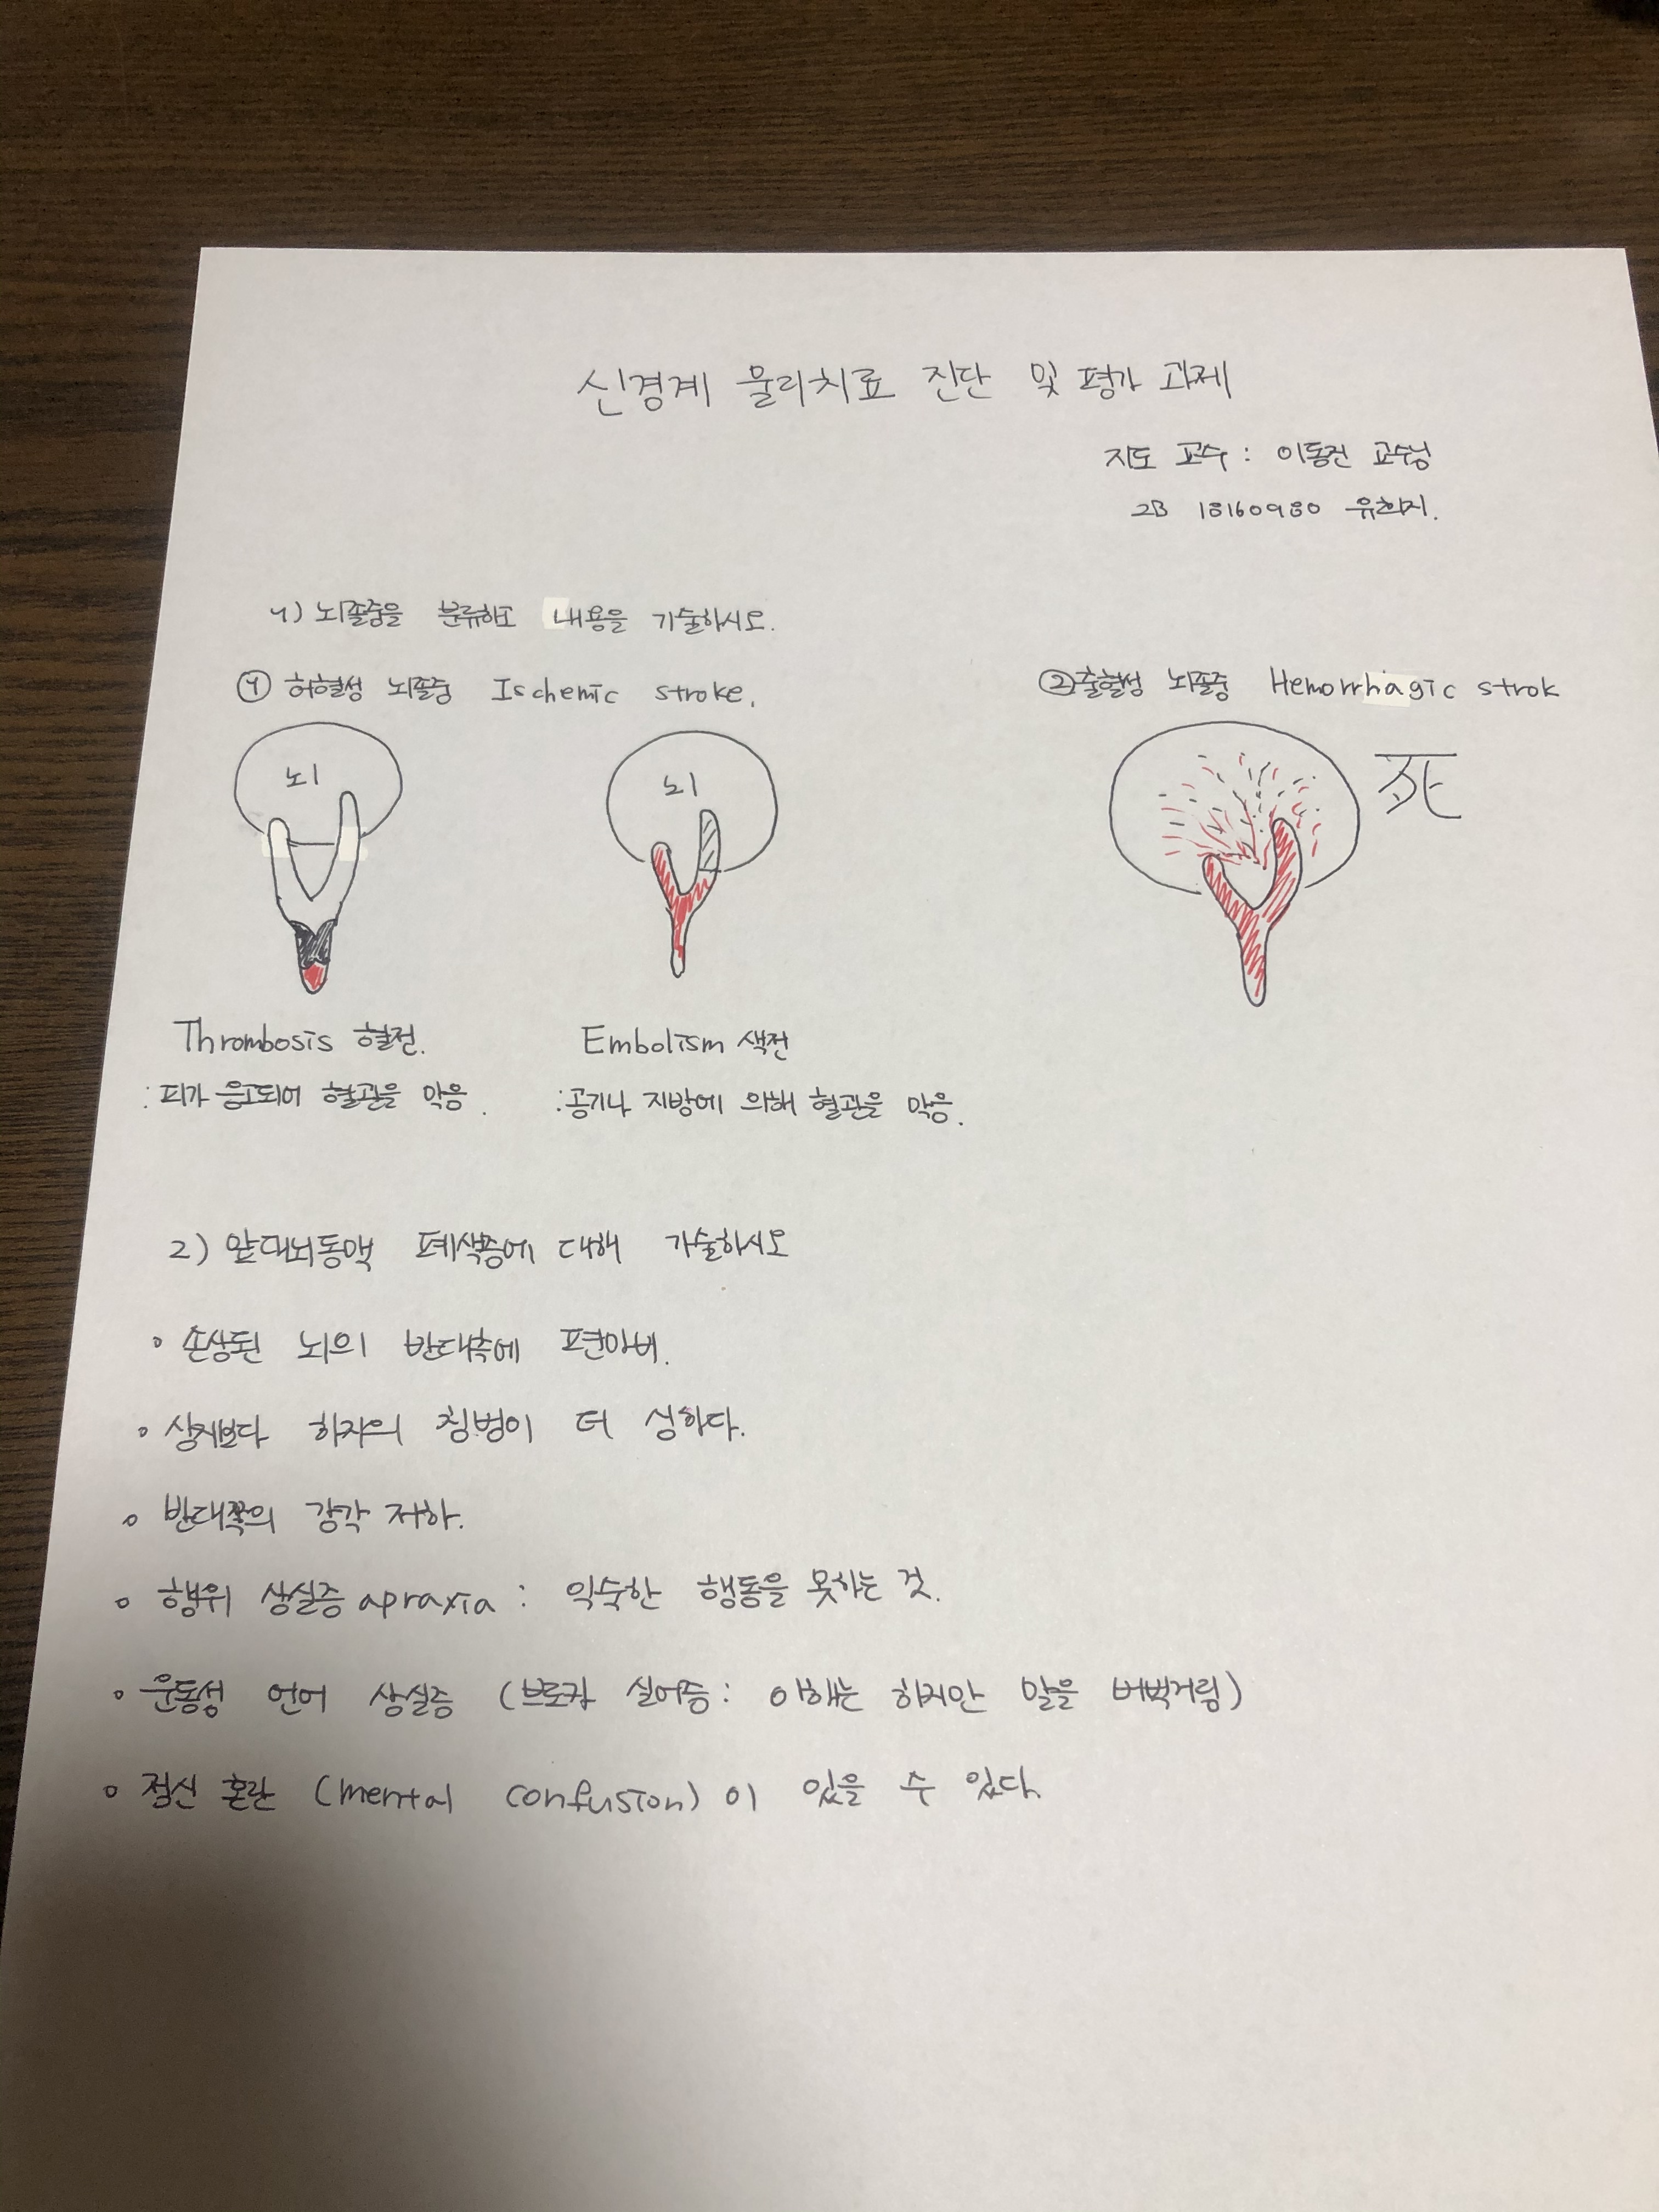 신경계 물리치료 진단 및 평가 과제
지도 교수 : 이동건 교수님
2B 18160980 유희지.
1) 뇌졸중을 분류하고 내용을 기술하시오.
① 허혈성 뇌졸중 Ischemic stroke.
② 출혈성 뇌졸중 Hemorrhagic strok
뇌
뇌
死
Thrombosis 혈전.
: 피가 응고되어 혈관을 막음.
Embolism 색전
: 공기나 지방에 의해 혈관을 막음.
2) 앞대뇌동맥 폐색증에 대해 기술하시오
• 손상된 뇌의 반대측에 편마비.
• 상지보다 하지의 침범이 더 심하다.
• 반대쪽의 감각 저하.
• 행위 상실증 apraxia : 익숙한 행동을 못하는 것.
• 운동성 언어 상실증 (브로카 실어증 : 이해는 하지만 말을 버벅거림)
• 정신 혼란 (mental confusion) 이 있을 수 있다.